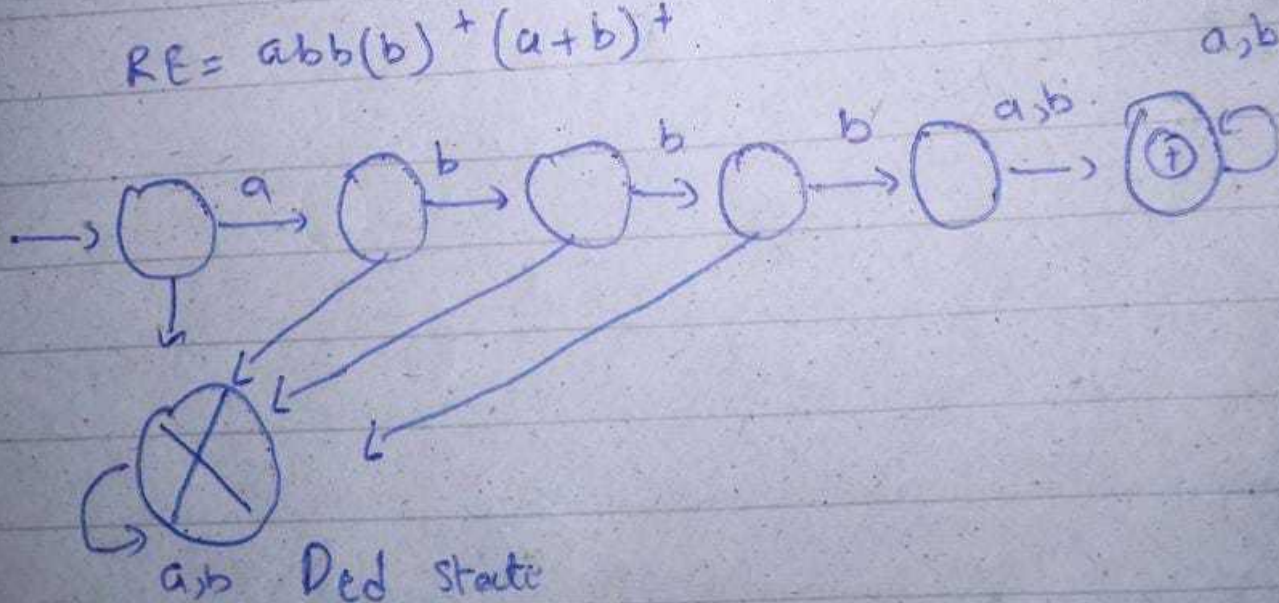 RE= abb(b)⁺(a+b)⁺
a,b
a b b b a,b +
a,b Ded state